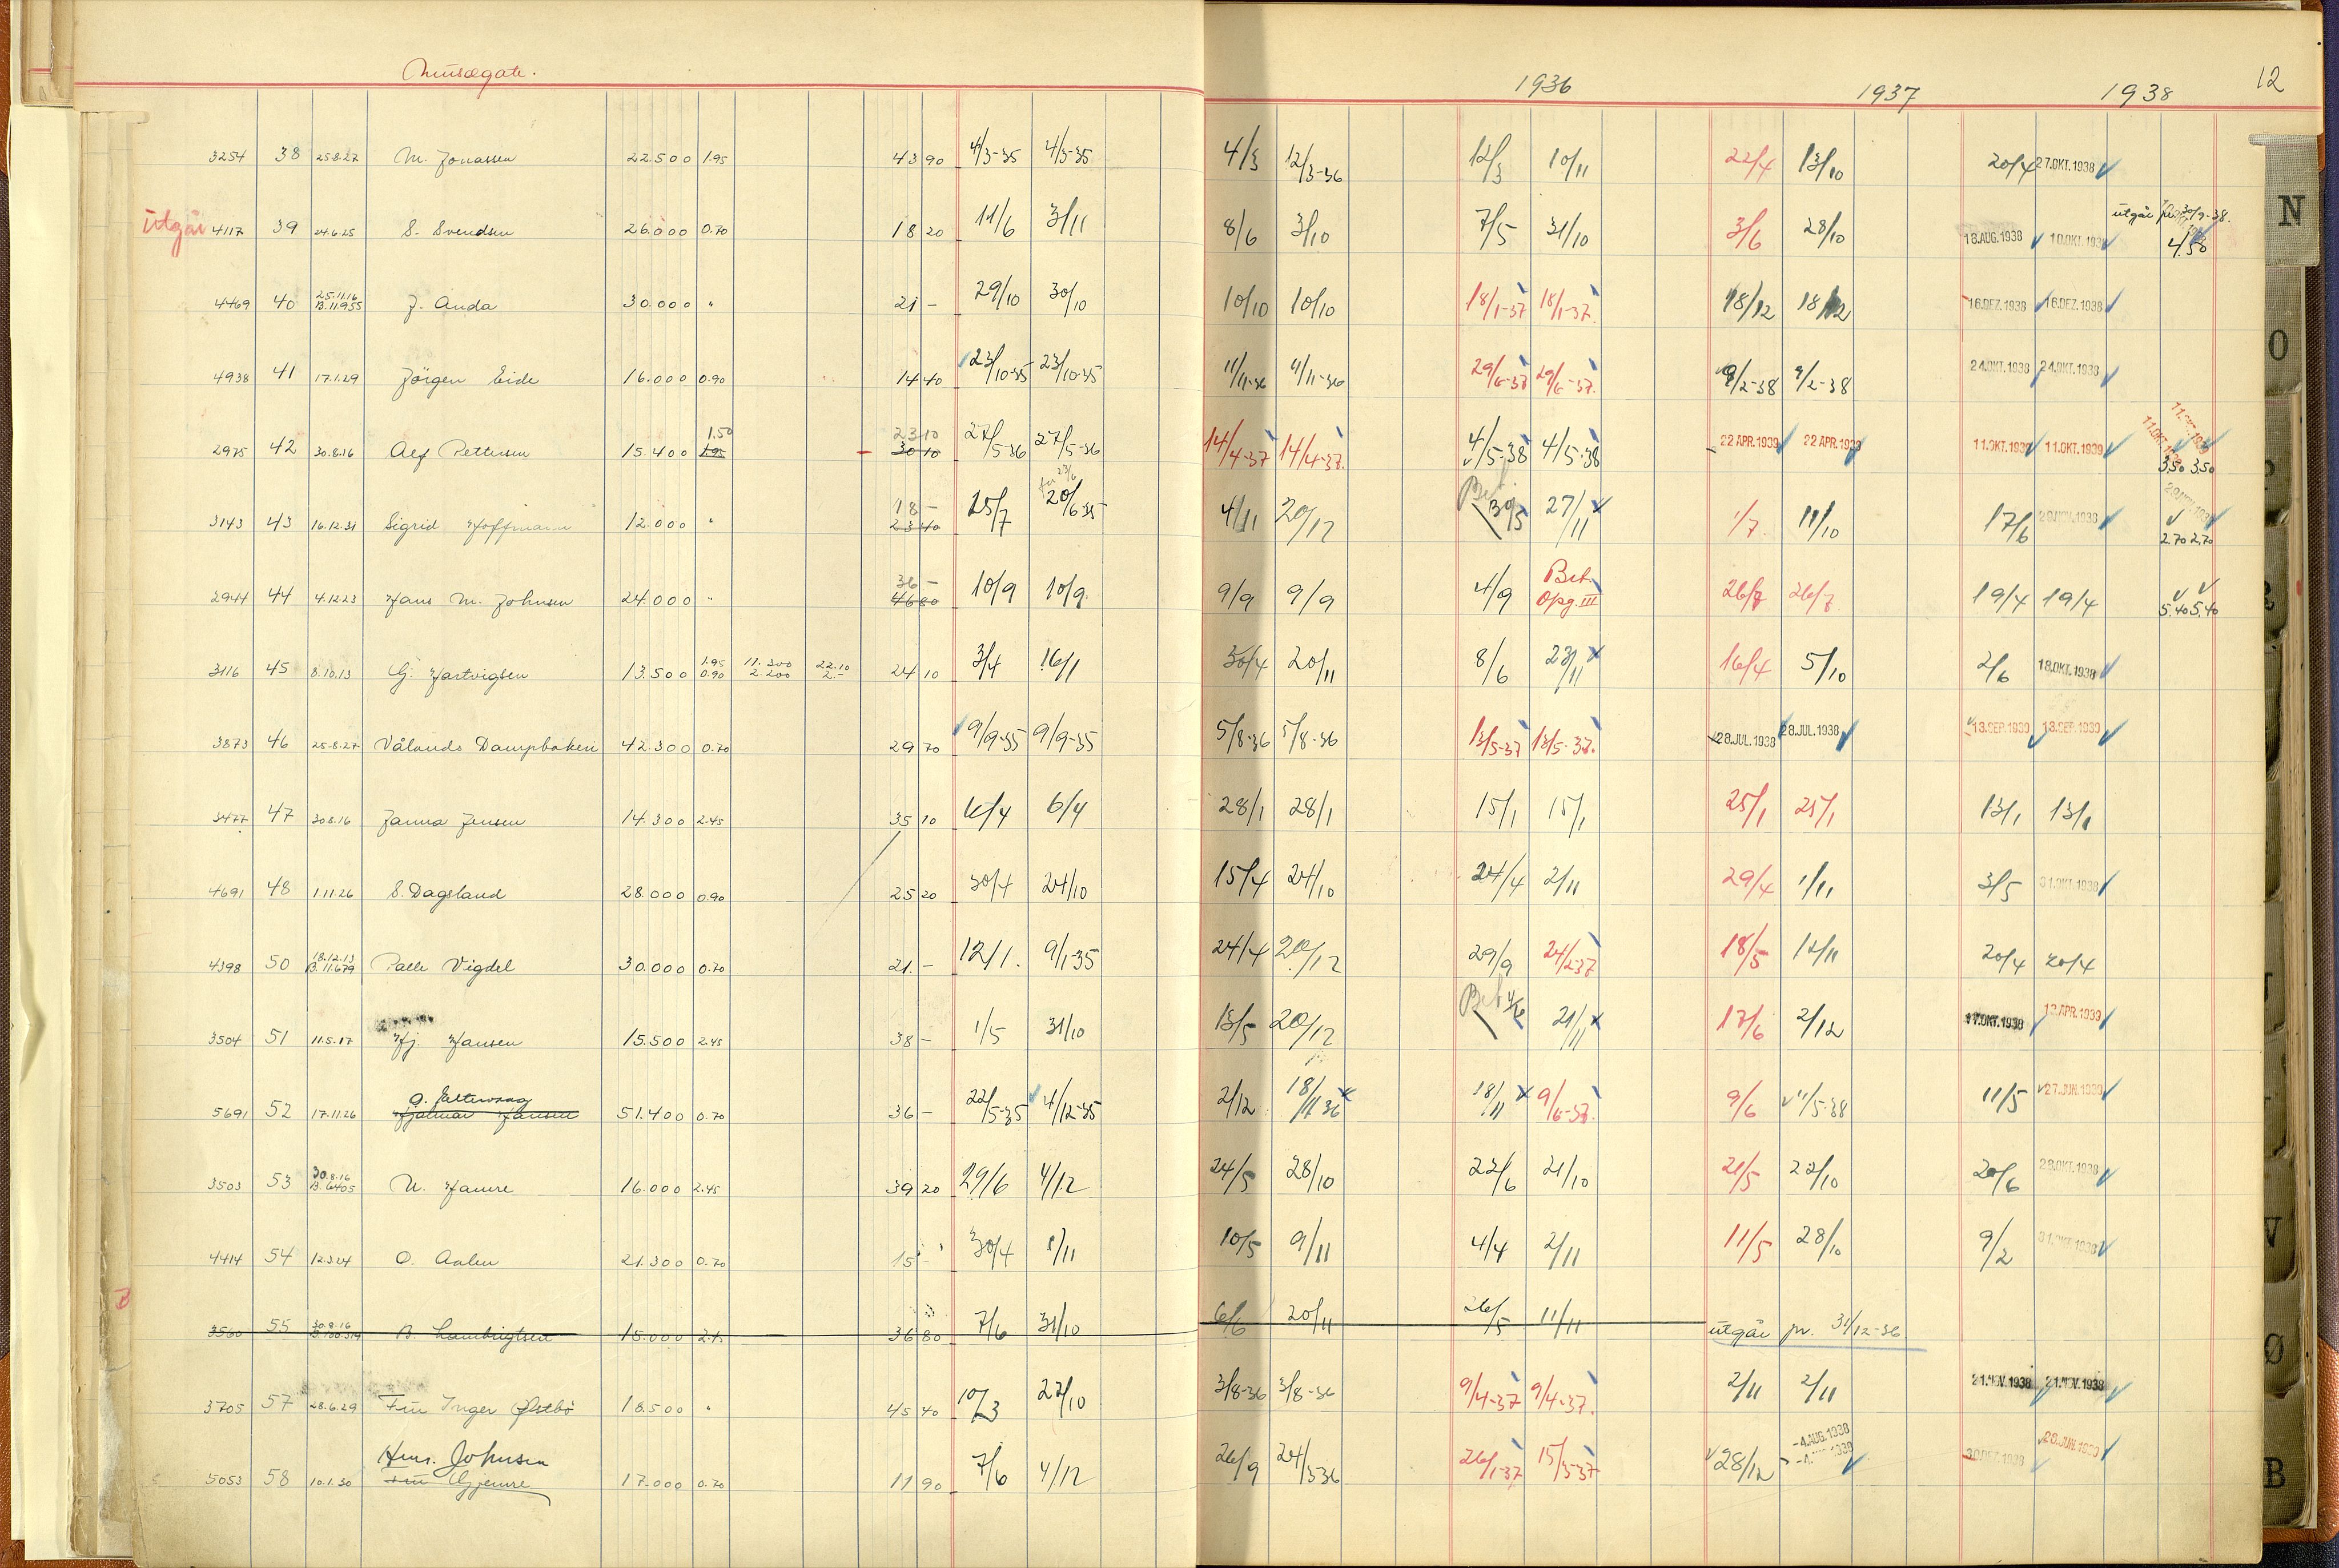 Musægate.
1936 1937 1938 12
3254 38 25.8.27 M. Jonassen 22.500 1.95 43 90 4/3-35 4/3-35 4/3 12/3-36 12/3 10/11 22/4 13/10 20/4 27.OKT.1938
utgår pr. 30/9-38.
utgår 4117 39 24.6.25 S. Svendsen 26.000 0.70 18 20 11/6 3/11 8/6 3/10 7/5 31/10 3/6 28/10 18.AUG.1938 10.OKT.193 4.58
4469 40 25.11.16 B.11.955 J. Anda 30.000 " 21 - 29/10 30/10 10/10 10/10 18/1-37 18/1-37. 18/12 18/12 16.DEZ.1938 16.DEZ.1938
4938 41 17.1.29 Jörgen Eide 16.000 0.90 14 40 23/10-35 23/10-35 11/11-36 11/11-36 29/6-37 29/6-37. 9/2-38 9/2-38 24.OKT.1938 24.OKT.1938
2975 42 30.8.16 Alf Pettersen 15.400 1.50 1.95 23 10 30 10 27/5-36 27/5-36 14/4-37 14/4-37. 4/5-38 4/5-38 22 APR.1939 22 APR.1939 11.OKT.1939 11.OKT.1939 3.50 3.50
3143 43 16.12.31 Sigrid Hoffmann 12.000 " 18 - 23 40 25/7 20/6-35 4/11 20/12 Bet. 30/5 27/11 1/7. 11/10 17/6 2.70 2.70
2944 44 4.12.23 Hans M. Johnsen 24.000 " 36 - 46 80 10/9 10/9 9/9 9/9 4/9 Bet. Opg. III 26/7 26/7 19/4 19/4 5.40 5.40
3116 45 8.10.13 Gj. Hartvigsen 13.500 1.95 0.90 11.300 2.200 22.10 2.- 24 10 3/4 16/1 30/4 20/11 8/6 23/11 16/4 5/10 2/6 18.OKT.1938
3873 46 25.8.27 Vålands Dampbakeri 42.300 0.70 29 70 9/9-35 9/9-35 5/8-36 5/8-36 13/5-37 13/5-37. 28.JUL.1938 28.JUL.1938 13.SEP.1939 13.SEP.1939
3477 47 30.8.16 Janna Jensen 14.300 2.45 35 10 6/4 6/4 28/1 28/1 15/1 15/1 25/1 25/1 13/1 13/1
4691 48 1.11.26 S. Dagsland 28.000 0.90 25 20 30/4 24/10 15/4 24/10 24/4 2/11 29/4 1/11 3/5 31.OKT.1938
4398 50 18.12.13 B.11.679 Palle Vigdel 30.000 0.70 21. - 12/1. 9/1-35 24/4 20/12 29/9 24/2-37 18/5 12/11 20/4 20/4
3504 51 11.5.17 Hj. Hansen 15.500 2.45 38 - 1/5 31/10 13/5 20/12 Bet 4/6 21/11 17/6 2/12 17.OKT.1938 13.APR.1939
5691 52 17.11.26 Hjalmar Hansen 51.400 0.70 36 - 22/5-35 4/12-35 2/12 18/11 36 18/11 9/6-37. 9/6 11/5-38 11/5 27.JUN.1939
3503 53 30.8.16 B.6405 N. Hamre 16.000 2.45 39 20 29/6 4/12 24/5 28/10 22/6 21/10 21/5 22/10 20/6 28.OKT.1938
4414 54 12.3.24 O. Aalen 21.300 0.70 15 - 30/4 1/11 10/5 9/11 4/4 2/11 11/5 28/10 9/2 31.OKT.1938
3560 55 30.8.16 B. Lambrigtsen 15.000 2.45 36 80 7/6 31/10 6/6 20/11 26/5 11/11 utgår pr. 31/12-36
3705 57 28.6.29 Fru Inger Østbö 18.500 " 45 40 10/3 22/10 3/8-36 3/8-36 9/4-37 9/4-37. 2/11 2/11 21.NOV.1938 21.NOV.1938
Hans. Johnsen
5053 58 10.1.30 Fru Gjemre 17.000 0.70 11 90 7/6 4/12 26/9 24/3-36 26/1-37 15/3-37 28/12 -4.AUG.1938 30.DEZ.1938 28.JUN.1939
N
O
V
Ø
B